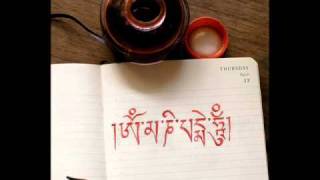 THURSDAY
།ཨོཾ་མ་ཎི་པདྨེ་ཧཱུྃ།